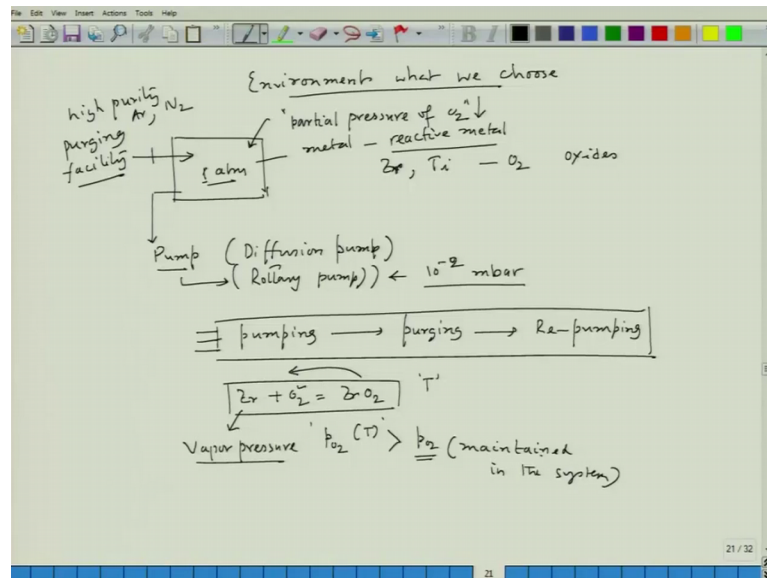 File Edit View Insert Actions Tools Help
Environment what we choose
high purity
Ar, N2
purging
facility
1 atm
"partial pressure of O2" ↓
metal - reactive metal
Zr, Ti - O2 oxides
Pump (Diffusion pump)
(Rottary pump)) ← 10-2 mbar
pumping → purging → Re-pumping
Zr + O2 = ZrO2 'T'
Vapor pressure 'pO2 (T)' > pO2 (maintained
in the system)
21 / 32
21